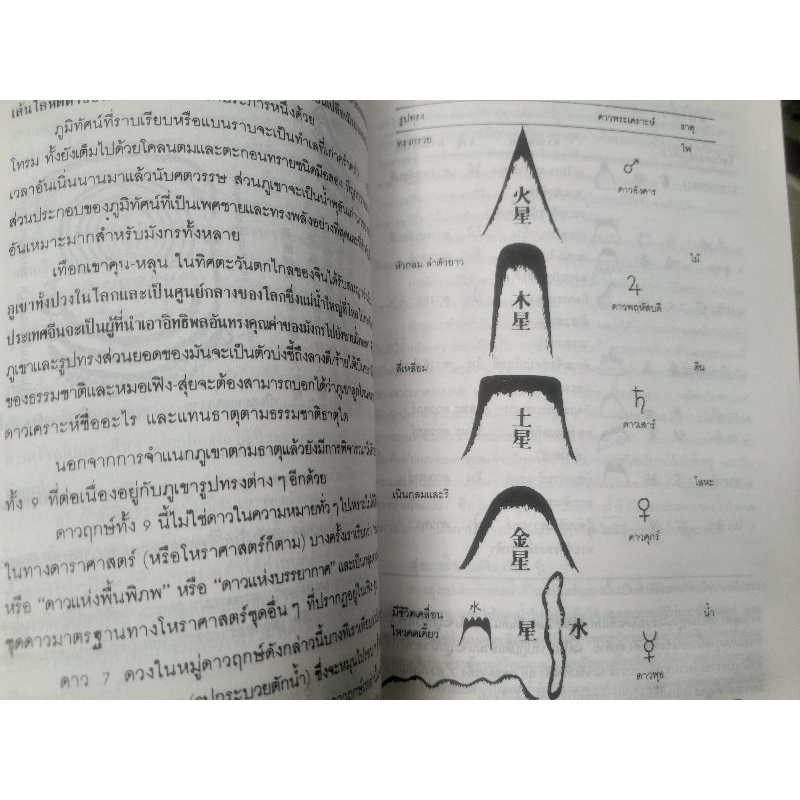 ภูมิทัศน์ที่ราบเรียบหรือแบนราบจะเป็นทำเลที่เก่าคร่ำคร่า
โทรม ทั้งยังเต็มไปด้วยโคลนตมและตะกอนทรายชนิดมีละออง
เวลาอันเนิ่นนานมาแล้วนับศตวรรษ ส่วนภูเขาจะเป็น
ส่วนประกอบของภูมิทัศน์ที่เป็นเพศชายและทรงพลังอย่างที่สุด
อันเหมาะมากสำหรับมังกรทั้งหลาย
เทือกเขาคุน-หลุน ในทิศตะวันตกไกลของจีนได้รับ
ภูเขาทั้งปวงในโลกและเป็นศูนย์กลางของโลกซึ่งแม่น้ำใหญ่ที่
ประเทศจีนจะเป็นผู้ที่นำเอาอิทธิพลอันทรงคุณค่าของมังกรไป
ภูเขาและรูปทรงส่วนยอดของมันจะเป็นตัวบ่งชี้ถึงลางดี/ร้ายได้
ของธรรมชาติและหมอเฟิง-สุ่ยจะต้องสามารถบอกได้ว่าภูเขาลูก
ดาวเคราะห์ชื่ออะไร และแทนธาตุตามธรรมชาติธาตุใด
นอกจากการจำแนกภูเขาตามธาตุแล้วยังมีการ
ทั้ง 9 ที่ต่อเนื่องอยู่กับภูเขารูปทรงต่าง ๆ อีกด้วย
ดาวฤกษ์ทั้ง 9 นี้ไม่ใช่ดาวในความหมายทั่ว ๆ ไปเพราะ
ในทางดาราศาสตร์ (หรือโหราศาสตร์ก็ตาม) บางครั้งเราเรียก
หรือ “ดาวแห่งพื้นพิภพ” หรือ “ดาวแห่งบรรยากาศ” และเป็น
ชุดดาวมาตรฐานทางโหราศาสตร์ชุดอื่น ๆ ที่ปรากฏอยู่ใน
ดาว 7 ดวงในหมู่ดาวฤกษ์ดังกล่าวนี้บางทีเราเรียก
กระบวยตักน้ำ) ซึ่งจะหมุนไป
รูปทรง ดาวพระเคราะห์ ธาตุ
ทรงกรวย ไฟ
火星 ♂
ดาวอังคาร
หัวกลม ลำตัวยาว ไม้
木星 ♃
ดาวพฤหัสบดี
สี่เหลี่ยม ดิน
土星 ♄
ดาวเสาร์
เนินกลมและรี โลหะ
金星 ♀
ดาวศุกร์
มีชีวิตเคลื่อน 水 星 水 น้ำ
ไหวคดเคี้ยว ☿
ดาวพุธ